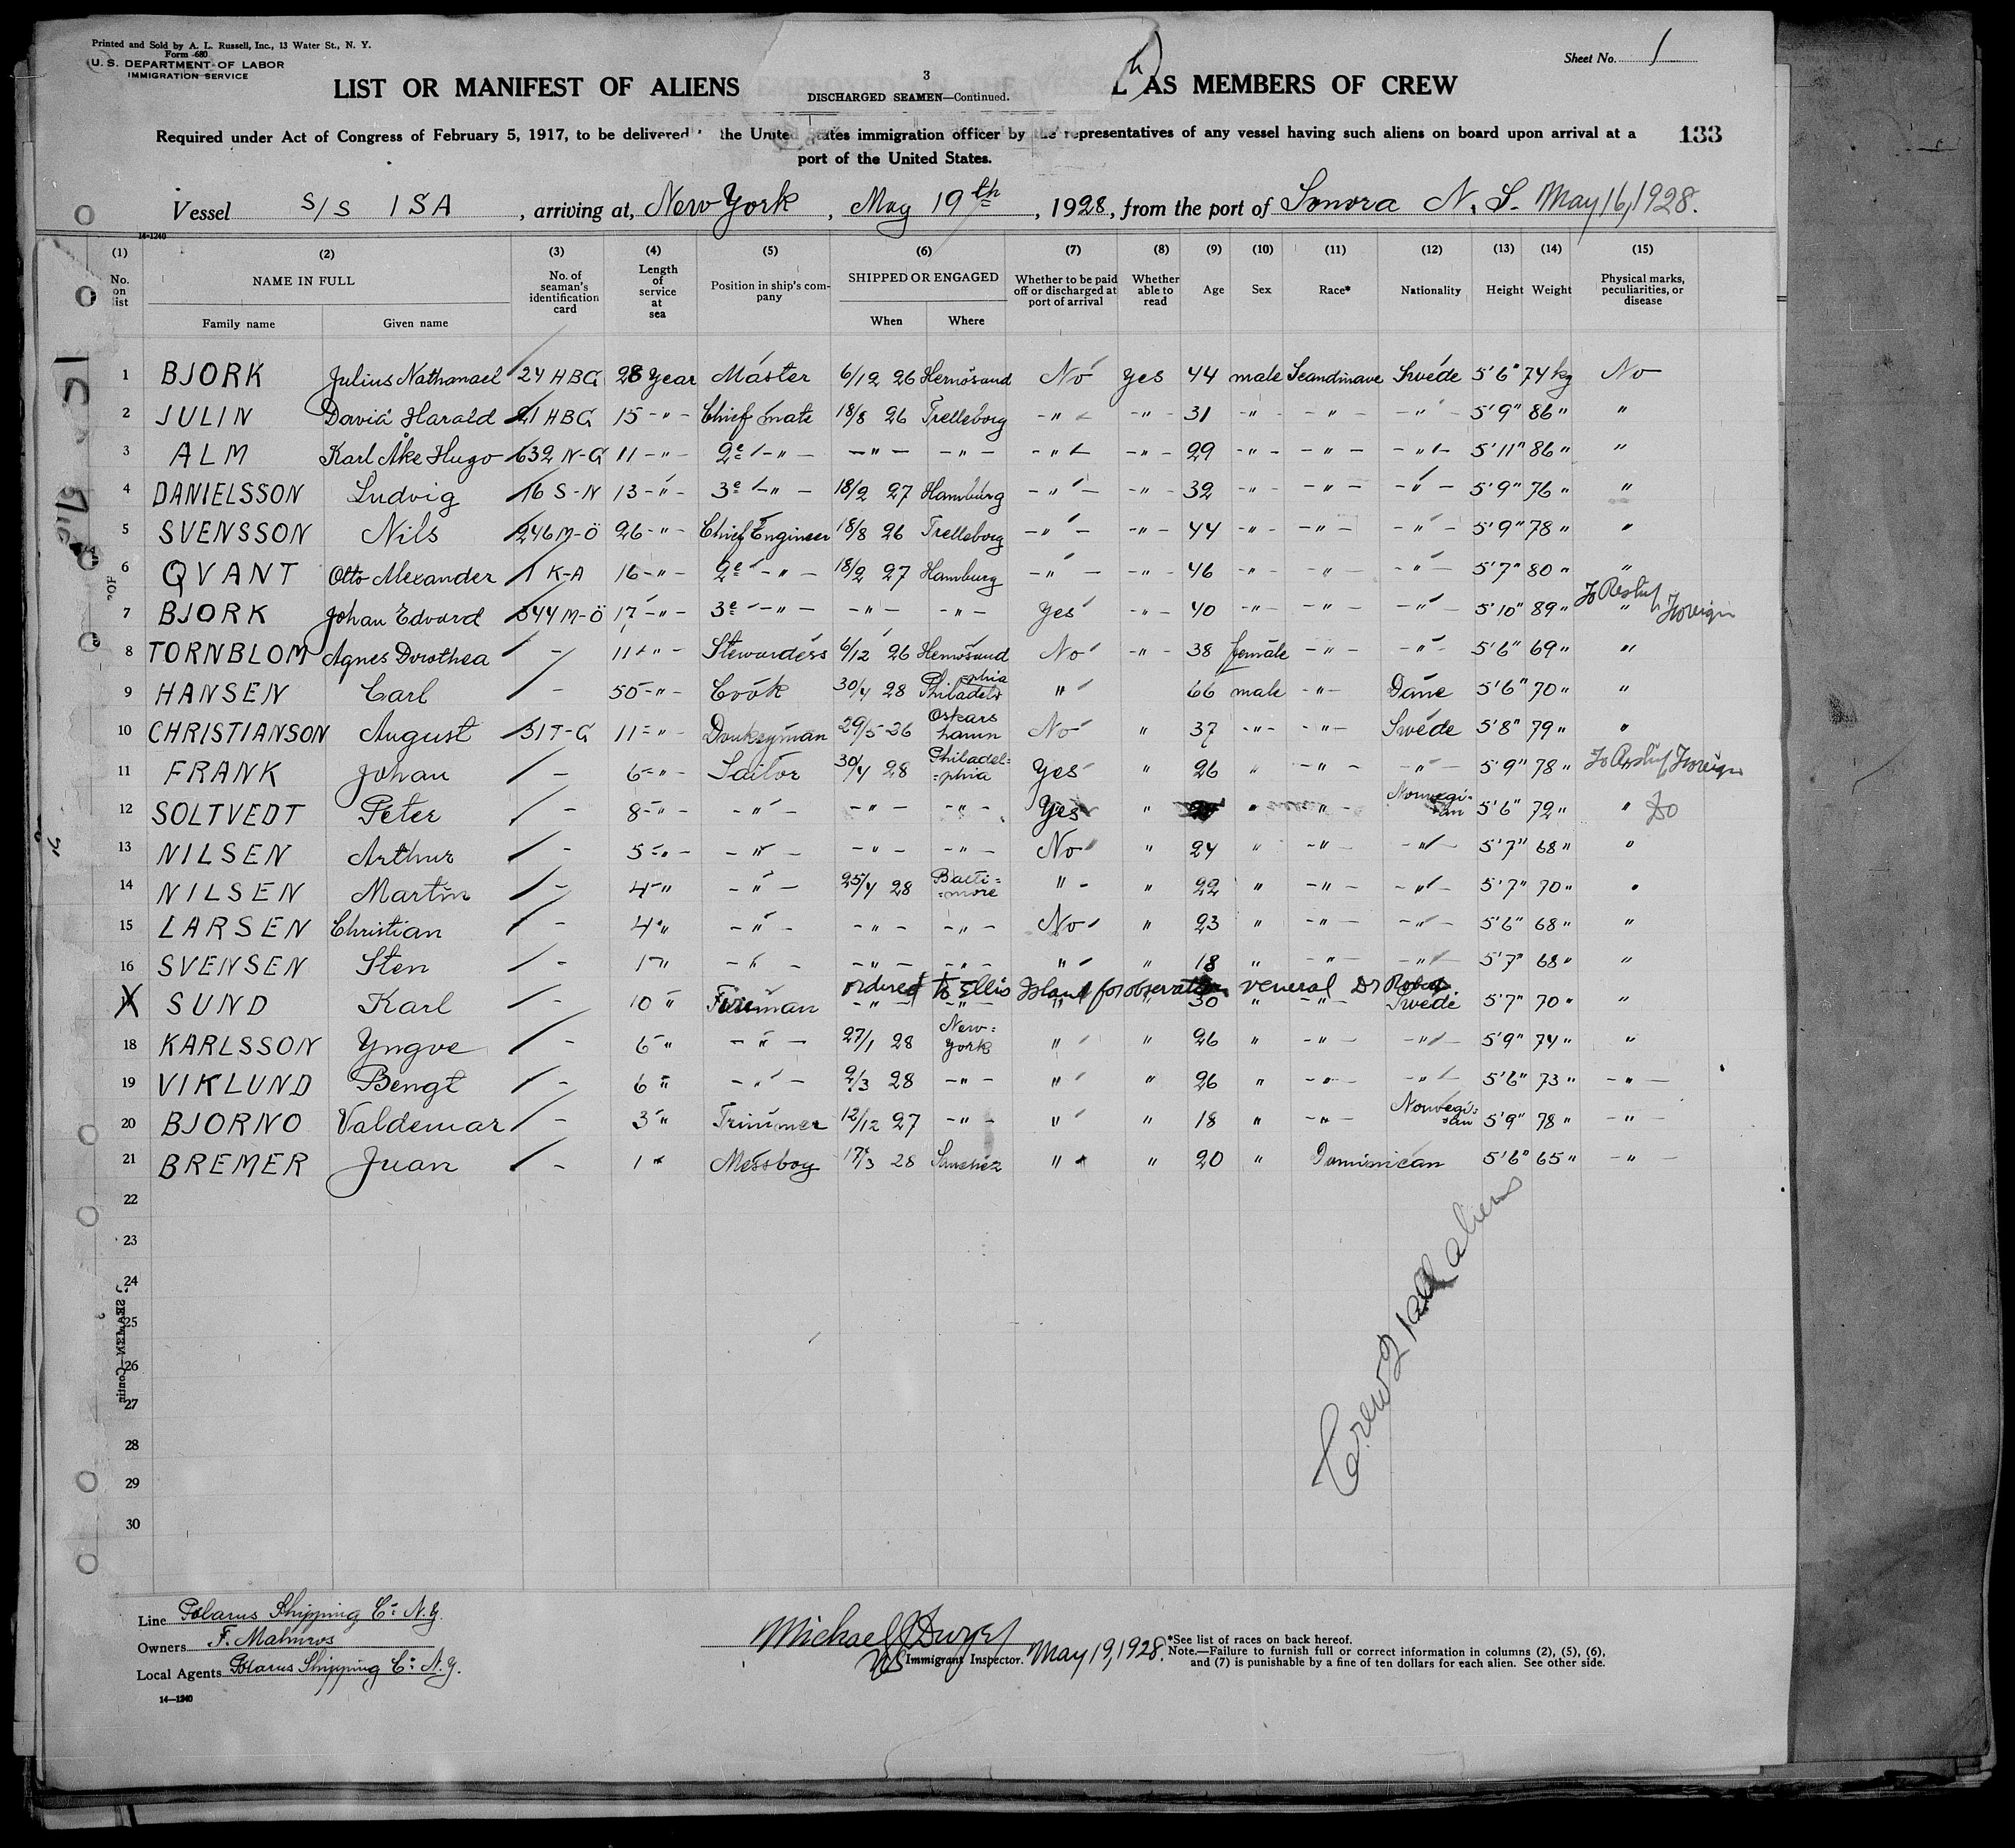 Printed and Sold by A. L. Russell, Inc., 13 Water St., N. Y.
Form 680
U. S. DEPARTMENT OF LABOR
IMMIGRATION SERVICE
Sheet No. 1
3
LIST OR MANIFEST OF ALIENS AS MEMBERS OF CREW
DISCHARGED SEAMEN—Continued.
Required under Act of Congress of February 5, 1917, to be delivered the United States immigration officer by the representatives of any vessel having such aliens on board upon arrival at a
port of the United States.
133
Vessel S/S ISA, arriving at, New York, May 19th, 1928, from the port of Sonora N. S. May 16, 1928.
14-1240
(1) (2) (3) (4) (5) (6) (7) (8) (9) (10) (11) (12) (13) (14) (15)
No. on list NAME IN FULL No. of seaman's identification card Length of service at sea Position in ship's company SHIPPED OR ENGAGED Whether to be paid off or discharged at port of arrival Whether able to read Age Sex Race* Nationality Height Weight Physical marks, peculiarities, or disease
Family name Given name When Where
1 BJORK Julius Nathanael 24 HBG 28 year Master 6/12 26 Hernösand No yes 44 male Scandinave Swede 5'6" 74 kg No
2 JULIN David Harald 21 HBG 15 -"- Chief mate 18/8 26 Trelleborg -"- -"- 31 -"- -"- -"- 5'9" 86 " "
3 ALM Karl Åke Hugo 632 N-G 11 -"- 2e -"- -"- -"- -"- -"- 29 -"- -"- -"- 5'11" 86 " "
4 DANIELSSON Ludvig 16 S-N 13 -"- 3e -"- 18/2 27 Hamburg -"- -"- 32 -"- -"- -"- 5'9" 76 " "
5 SVENSSON Nils 246 M-Ö 26 -"- Chief Engineer 18/8 26 Trelleborg -"- -"- 44 -"- -"- -"- 5'9" 78 " "
6 QVANT Otto Alexander 1 K-A 16 -"- 2e -"- 18/2 27 Hamburg -"- -"- 46 -"- -"- -"- 5'7" 80 " "
7 BJORK Johan Edvard 544 M-Ö 17 -"- 3e -"- -"- -"- Yes -"- 40 -"- -"- -"- 5'10" 89 " " To Reship Foreign
8 TORNBLOM Agnes Dorothea - 11 -"- Stewardess 6/12 26 Hernösand No -"- 38 female -"- -"- 5'6" 69 " "
9 HANSEN Carl - 50 -"- Cook 30/4 28 Philadelphia " 66 male -"- Dane 5'6" 70 " "
10 CHRISTIANSON August 51 T-G 11 -"- Donkeyman 29/5 26 Oskarshamn No " 37 -"- -"- Swede 5'8" 79 " "
11 FRANK Johan - 6 -"- Sailor 30/4 28 Philadel=phia Yes " 26 " -"- -"- 5'9" 78 " To Reship Foreign
12 SOLTVEDT Peter - 8 -"- -"- -"- -"- Yes " " -"- Norwegi-an 5'6" 72 " " Do
13 NILSEN Arthur - 5 -"- -"- -"- -"- No " 24 " -"- -"- 5'7" 68 " "
14 NILSEN Martin - 4 " -"- 25/4 28 Balti=more " " 22 " -"- -"- 5'7" 70 " "
15 LARSEN Christian - 4 " -"- -"- -"- No " 23 " -"- -"- 5'6" 68 " "
16 SVENSEN Sten - 1 " -"- -"- -"- " " 18 " -"- -"- 5'7" 68 " "
ordered to Ellis Island for observation veneral Dr
X SUND Karl - 10 " Fireman -"- -"- " " 30 " -"- Swede 5'7" 70 " "
18 KARLSSON Yngve - 6 " -"- 27/1 28 New=york " " 26 " -"- -"- 5'9" 74 " "
19 VIKLUND Bengt - 6 " -"- 2/3 28 -"- " " 26 " -"- -"- 5'6" 73 " -"-
20 BJORNO Valdemar - 3 " Trimmer 12/12 27 -"- " " 18 " -"- Norwegi=an 5'9" 78 " -"-
21 BREMER Juan - 1 " Messboy 17/3 28 Sanchez " " 20 " Dominican 5'6" 65 " -"-
22
23
24
25
26
27
28
29
30
Crew 21 all aliens
Line Polarus Shipping Co N.Y.
Owners F. Malmros
Local Agents Polarus Shipping Co N.Y.
14—1240
Michael J Dwyer
US Immigrant Inspector. May 19, 1928.
*See list of races on back hereof.
Note.—Failure to furnish full or correct information in columns (2), (5), (6),
and (7) is punishable by a fine of ten dollars for each alien. See other side.